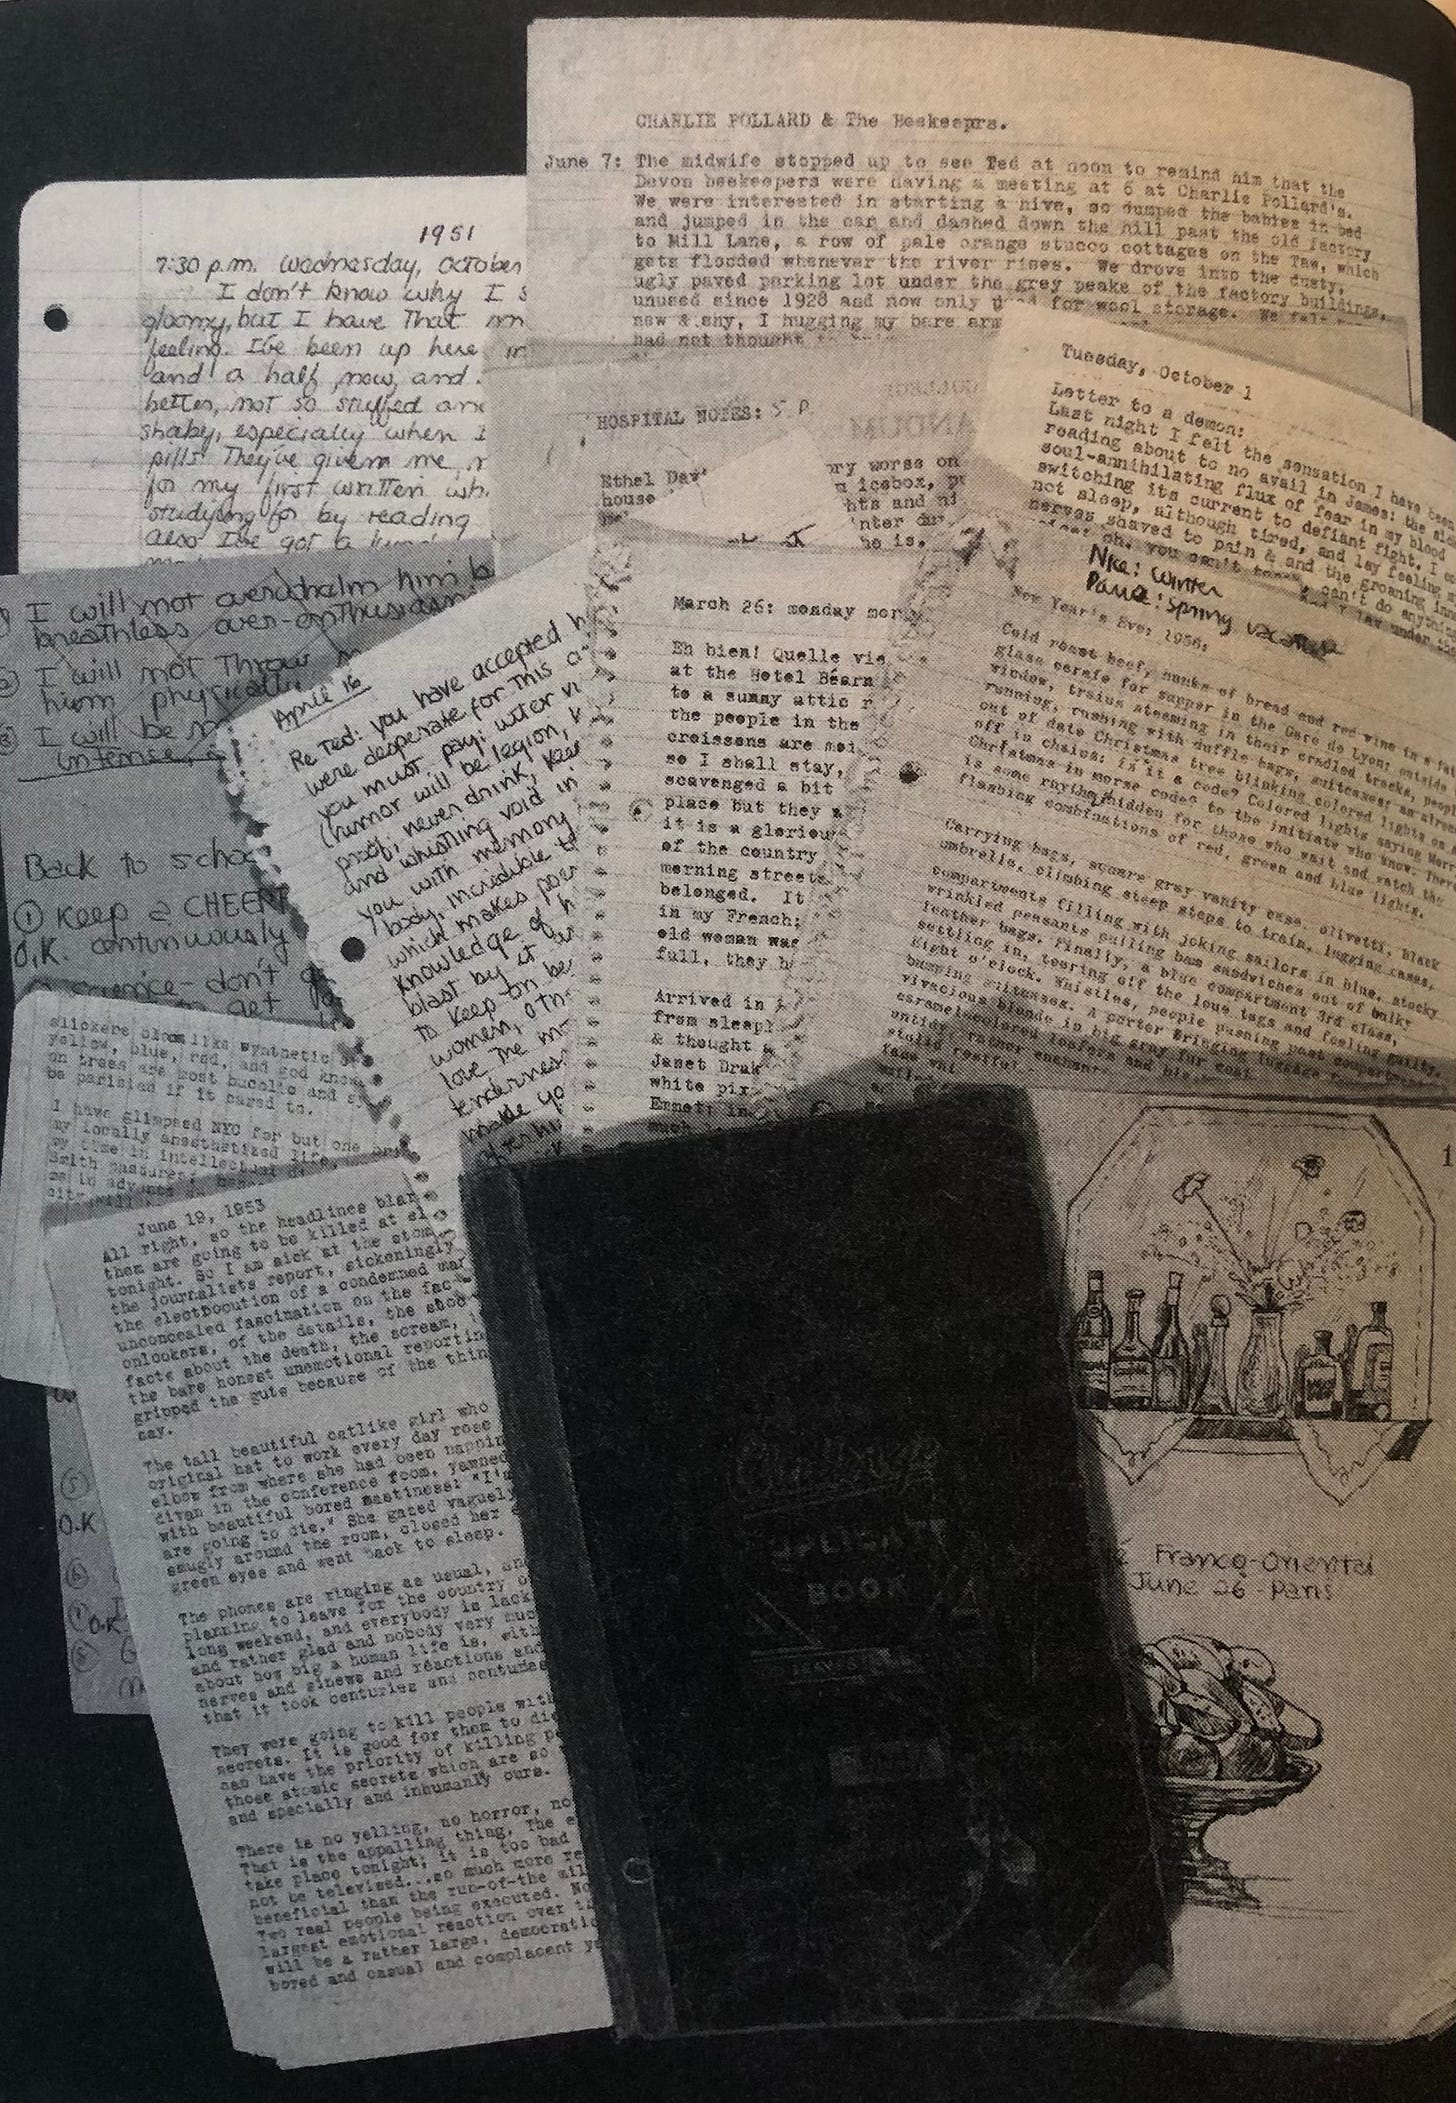 CHARLIE POLLARD & The Beekeeprs.
June 7: The midwife stopped up to see Ted at noon to remind him that the
Devon beekeepers were having a meeting at 6 at Charlie Pollard's.
We were interested in starting a hive, so dumped the babies in bed
and jumped in the car and dashed down the hill past the old factory
to Mill Lane, a row of pale orange stucco cottages on the Taw, which
gets flooded whenever the river rises. We drove into the dusty,
ugly paved parking lot under the grey peaks of the factory buildings,
unused since 1928 and now only for wool storage. We
new & shy, I hugging my bare
had not thought
1951
7:30 p.m. Wednesday, October
I don't know why I
gloomy, but I have that
feeling. I've been up here
and a half now, and
better, not so stuffed
shaky, especially when I
pills. They've given me
for my first written
studying for by reading
also I've got a
HOSPITAL NOTES: S P
Ethel worse on
house icebox,
hts and
he is.
Tuesday, October 1
Letter to a demon:
Last night I felt the sensation I have been
reading about to no avail in James: the
soul-annihilating flux of fear in my blood
switching its current to defiant fight. I
not sleep, although tired, and lay feeling my
nerves shaved to pain & and the groaning
oh, you can't can't do anything
Nice: Winter
Paris: Spring vacation
New Year's Eve: 1956:
Cold roast beef, hunks of bread and red wine in a
glass carafe for supper in the Gare de Lyon; outside
window, trains steaming in their cradled tracks, people
running, rushing with duffle bags, suitcases; an
out of date Christmas tree blinking colored lights on
off in chains: is it a code? Colored lights saying Merry
Christmas in morse code? to the initiate who know. There
is some rhythm hidden for those who wait and watch the
flashing combinations of red, green and blue lights.
Carrying bags, square gray vanity case, olivetti, black
umbrella, climbing steep steps to train, lugging cases,
compartments filling with joking sailors in blue, stocky
wrinkled peasants pulling ham sandwiches out of bulky
leather bags. Finally, a blue compartment 3rd class,
settling in, tearing off the loue tags and feeling guilty.
Eight o'clock. Whistles, people pushing past compartment,
bumping suitcases. A porter bringing luggage for
vivacious blonde in big gray fur coat
caramel-colored loafers and
untidy, rather
I will not overwhelm him
breathless over-enthusiasm
I will not throw
him physically
I will be
intense,
April 16
Re Ted: you have accepted
were desperate for this
you must pay: utter
(humor will be legion,
proof, never drink, keep
and whistling void in
you with memory
body, incredible
which makes
knowledge of
blast by it
to keep on
women,
love the
tenderness
make
March 26: monday
Eh bien! Quelle vie
at the Hotel Béarn
to a sunny attic
the people in the
croissens are
so I shall stay,
scavenged a bit
place but they
it is a
of the country
morning streets
belonged. It
in my French;
old woman was
full, they
Arrived in
from
& thought
Janet
white
Emmet: in
much
Back to
① Keep a CHEERF
O.K. continuously
science - don't
get
slickers bloom like synthetic
yellow, blue, red, and god knows
on trees are most bucolic and
be parisian if it cared to.
I have glimpsed NYC for but one
my locally anesthetized life,
my time in intellectual
Smith pastures,
me in advance
city
June 19, 1953
All right, so the headlines
them are going to be killed at
tonight. So I am sick at the
the journalists report, sickeningly
the electrocution of a condemned
unconcealed fascination on the
onlookers, of the details, the
facts about the death, the scream,
the bare honest unemotional
gripped the guts because of the
say.
The tall beautiful catlike girl who
original hat to work every day rose
elbow from where she had been
divan in the conference room, yawned
with beautiful bored nastiness: "I'm
are going to die." She gazed vaguely
smugly around the room, closed her
green eyes and went back to sleep.
The phones are ringing as usual, and
planning to leave for the country
long weekend, and everybody is
and rather glad and nobody very much
about how big a human life is, with
nerves and sinews and reactions and
that it took centuries and centuries
They were going to kill people with
secrets. It is good for them to
can have the priority of killing
those atomic secrets which are so
and specially and inhumanly ours.
There is no yelling, no horror, no
That is the appalling thing. The
take place tonight; it is too bad
not be televised...so much more
beneficial than the run-of-the
Two real people being executed. No
largest emotional reaction over
will be a rather large, democratic
bored and casual and complacent
⑤
O.K
⑥
O.K.
⑧
Challenge
BOOK
Franco-Oriental
June 26 - Paris
1